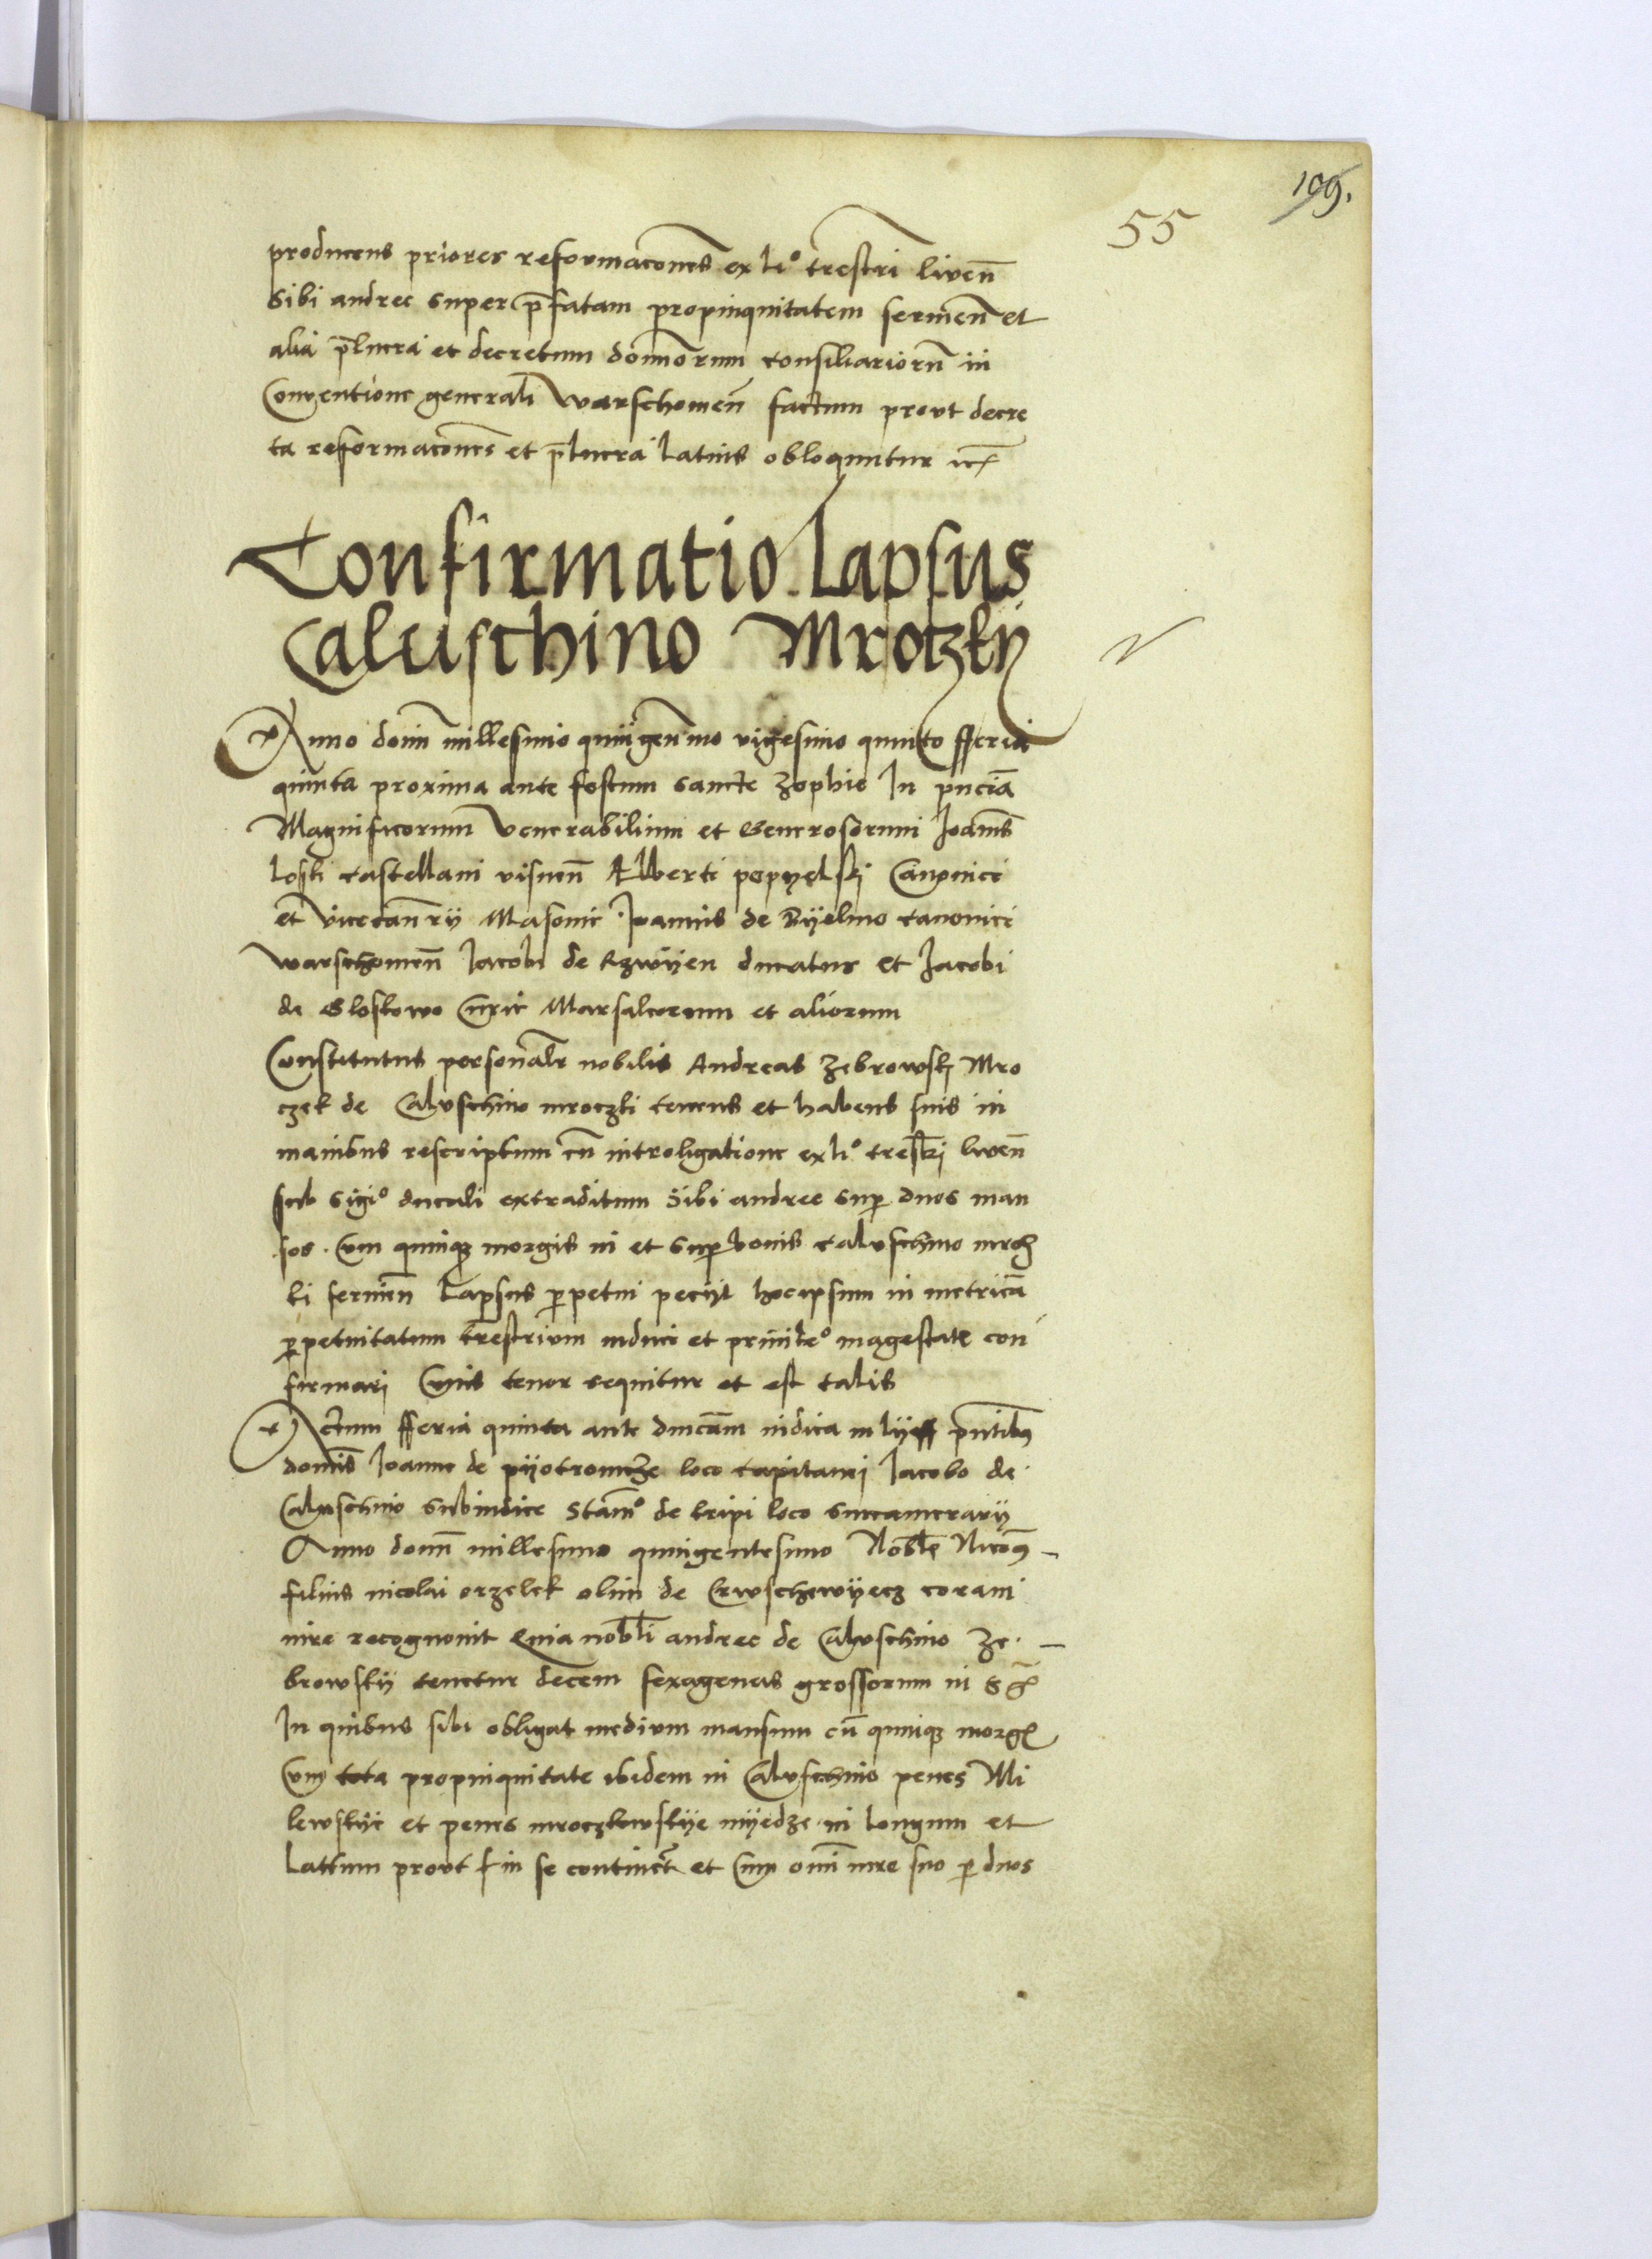 199.
55
producens priores reformacones ex li° trestri livien
Sibi andree super pfatam propinquitatem servien et
alia plucra et decretum dominorum consiliariorum in
Conventione generali Warschovien factum prout decre
ta reformacones et plucra latius obloquntur
Confirmatio Lapsus
Caluschino Mroczky
Anno domi millesimo quingenmo vigesimo quinto fferia
quinta proxima ante festum sancte Zophie In pncia
Magnificorum Venerabilium et Generosorum Joannis
castellani visnen Alberti popyelski Canonici
et vicecanrii Masovie Joannis de Dyelmo canonici
warschovien Jacobi de Rzwyen ducatus et Jacobi
de Gloskowo Curie Marsalcorum et aliorum
Constitutus personalr nobilis Andreas Zebrowski Mro
czek de Caluschino mroczki tenens et habens suis in
manibus rescriptum cu introligatione ex li° trestri livien
sub sigi° ducali extraditum Sibi andree sup duos man
sos cum quinque morgis in et sup bonis caluschino mrocz
ki servien Lapsus ppetui peciit hocipsum in metrica
ppetuitatum trestrium induci et magestate con
firmari Cuius tenor sequitur et est talis
Actum fferia quinta ante dnicam iudica in pntibus
domis Joanne de pyotrowicze loco capitanei Jacobo de
Caluschino subiudice Stani° de tripi loco succamerarii
Anno domi millesimo quingentesimo Nobilis
filius nicolai orzelek olim de Cruschewyecz coram
iure recognovit Quia nobili andree de Caluschino Ze
browsky tenetur decem sexagenas grossorum in
In quibus sibi obligat medium mansum cu quinque morg
Cum tota propinquitate ibidem in Caluschino penes Mi
lewskye et penes mroczkowskye myedze in longum et
Lattum prout in se continet et cum omi iure suo p duos